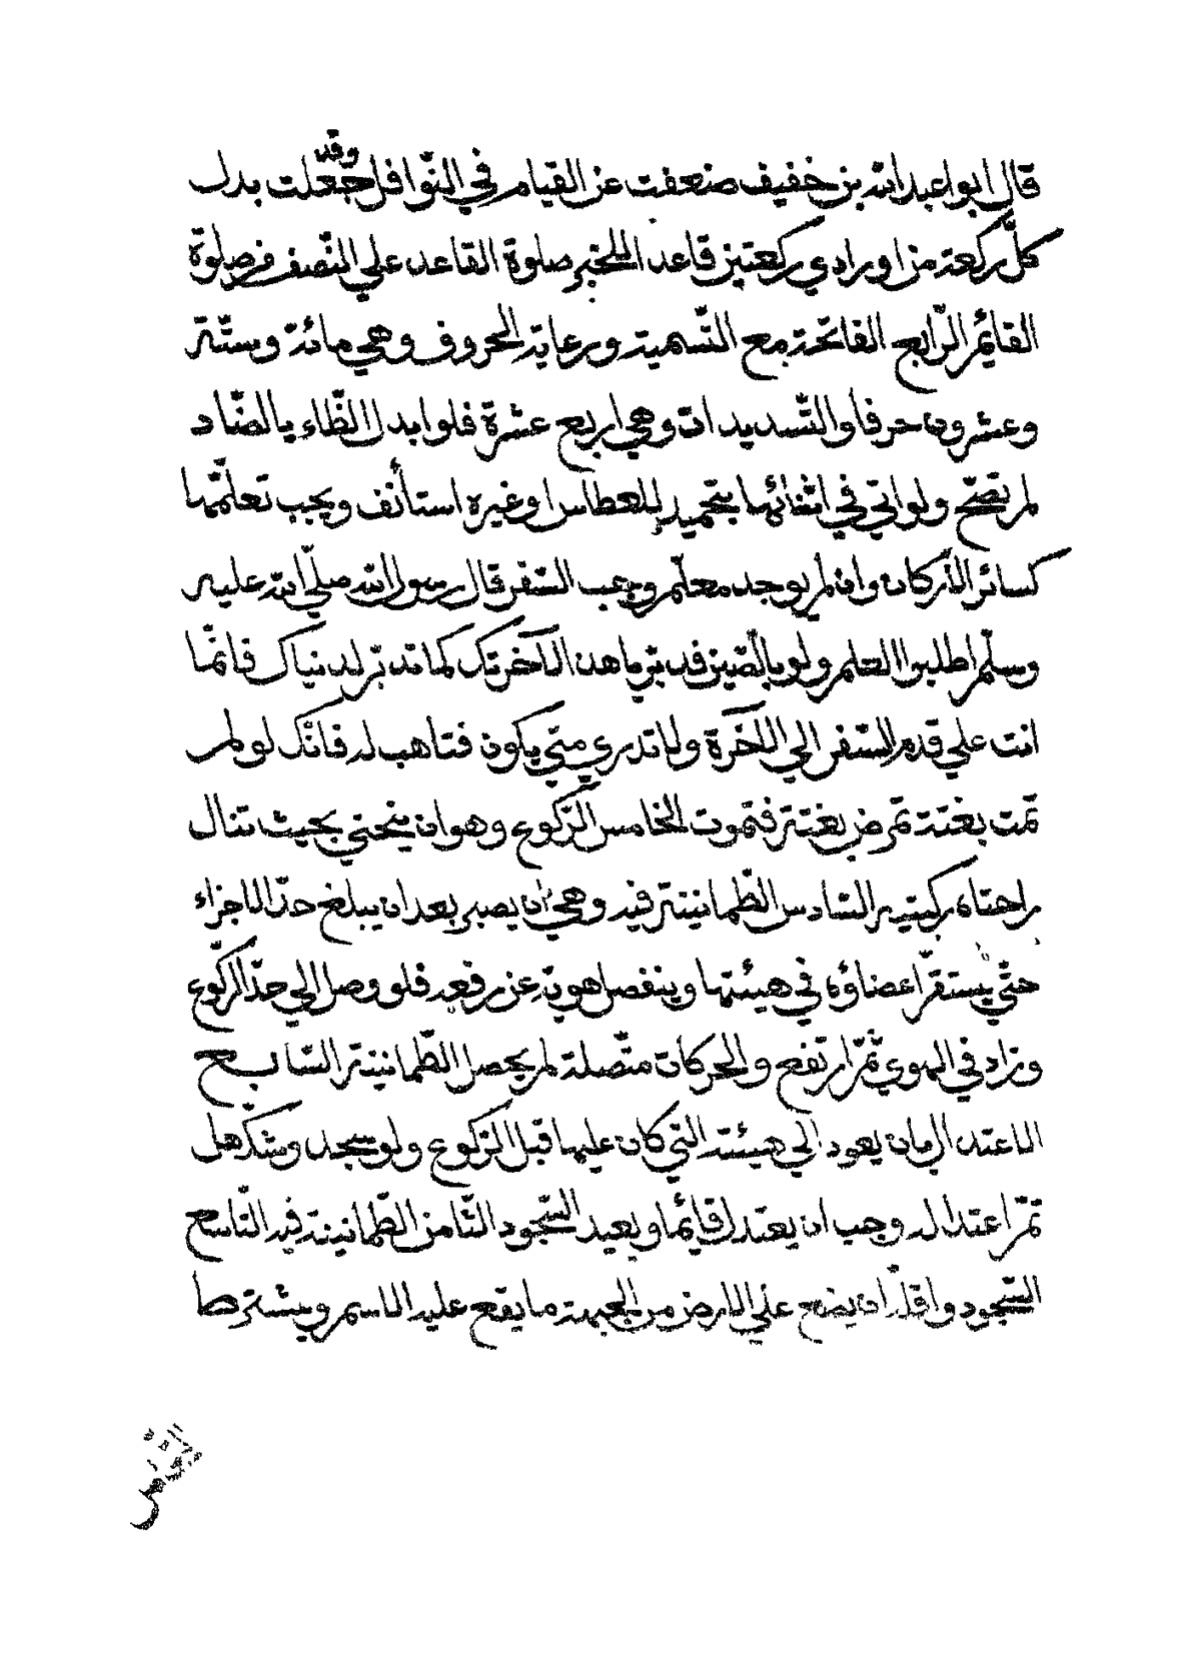 قال ابو عبد الله بن خفيف ضعفت عن القيام في النوافل وقد جعلت بدل
كلّ ركعة من اورادي ركعتين قاعدا للخبر صلوة القاعد علي النّصف من صلوة
القائم الرّابع الفاتحة مع التّسمية ورعاية الحروف وهي مائة وستّة
وعشرون حرفا والتّشديدات وهي اربع عشرة فلو ابدل الظّاء بالضّاد
لم تصحّ ولو اتي في اثنائها بتحميد للعطاس او غيره استأنف ويجب تعلّمها
كسائر الأركان وان لم يوجد معلّم وجب السّفر قال رسول الله صلّي الله عليه
وسلّم اطلبوا العلم ولو بالصّين فدبّر ما هنا لآخرتك كما تدبّر لدنياك فانّما
انت علي قدم السّفر الي الآخرة ولا تدري متي يكون فتاهب له فانّك لو لم
تمت بغتة تمرض بغتة فتموت الخامس الرّكوع وهو ان ينحني بحيث تنال
راحتاه ركبتيه السّادس الطّمانينة فيه وهي ان يصبر بعد ان يبلغ حدّ الاجزاء
حتّي يستقرّ اعضاؤه في هيئتها وينفصل هويّه عن رفعه فلو وصل الي حدّ الرّكوع
وزاد في الهوي ثمّ ارتفع والحركات متّصلة لم يحصل الطّمانينة السّابع
الاعتدال ان يعود الي هيئته التي كان عليها قبل الرّكوع ولو سجد وشكّ هل
تمّ اعتداله وجب ان يعتدل قائما ويعيد السّجود الثّامن الطّمانينة فيه التّاسع
السّجود واقلّه ان يضع علي الارض من الجبهة ما يقع عليه الاسم ويشترط